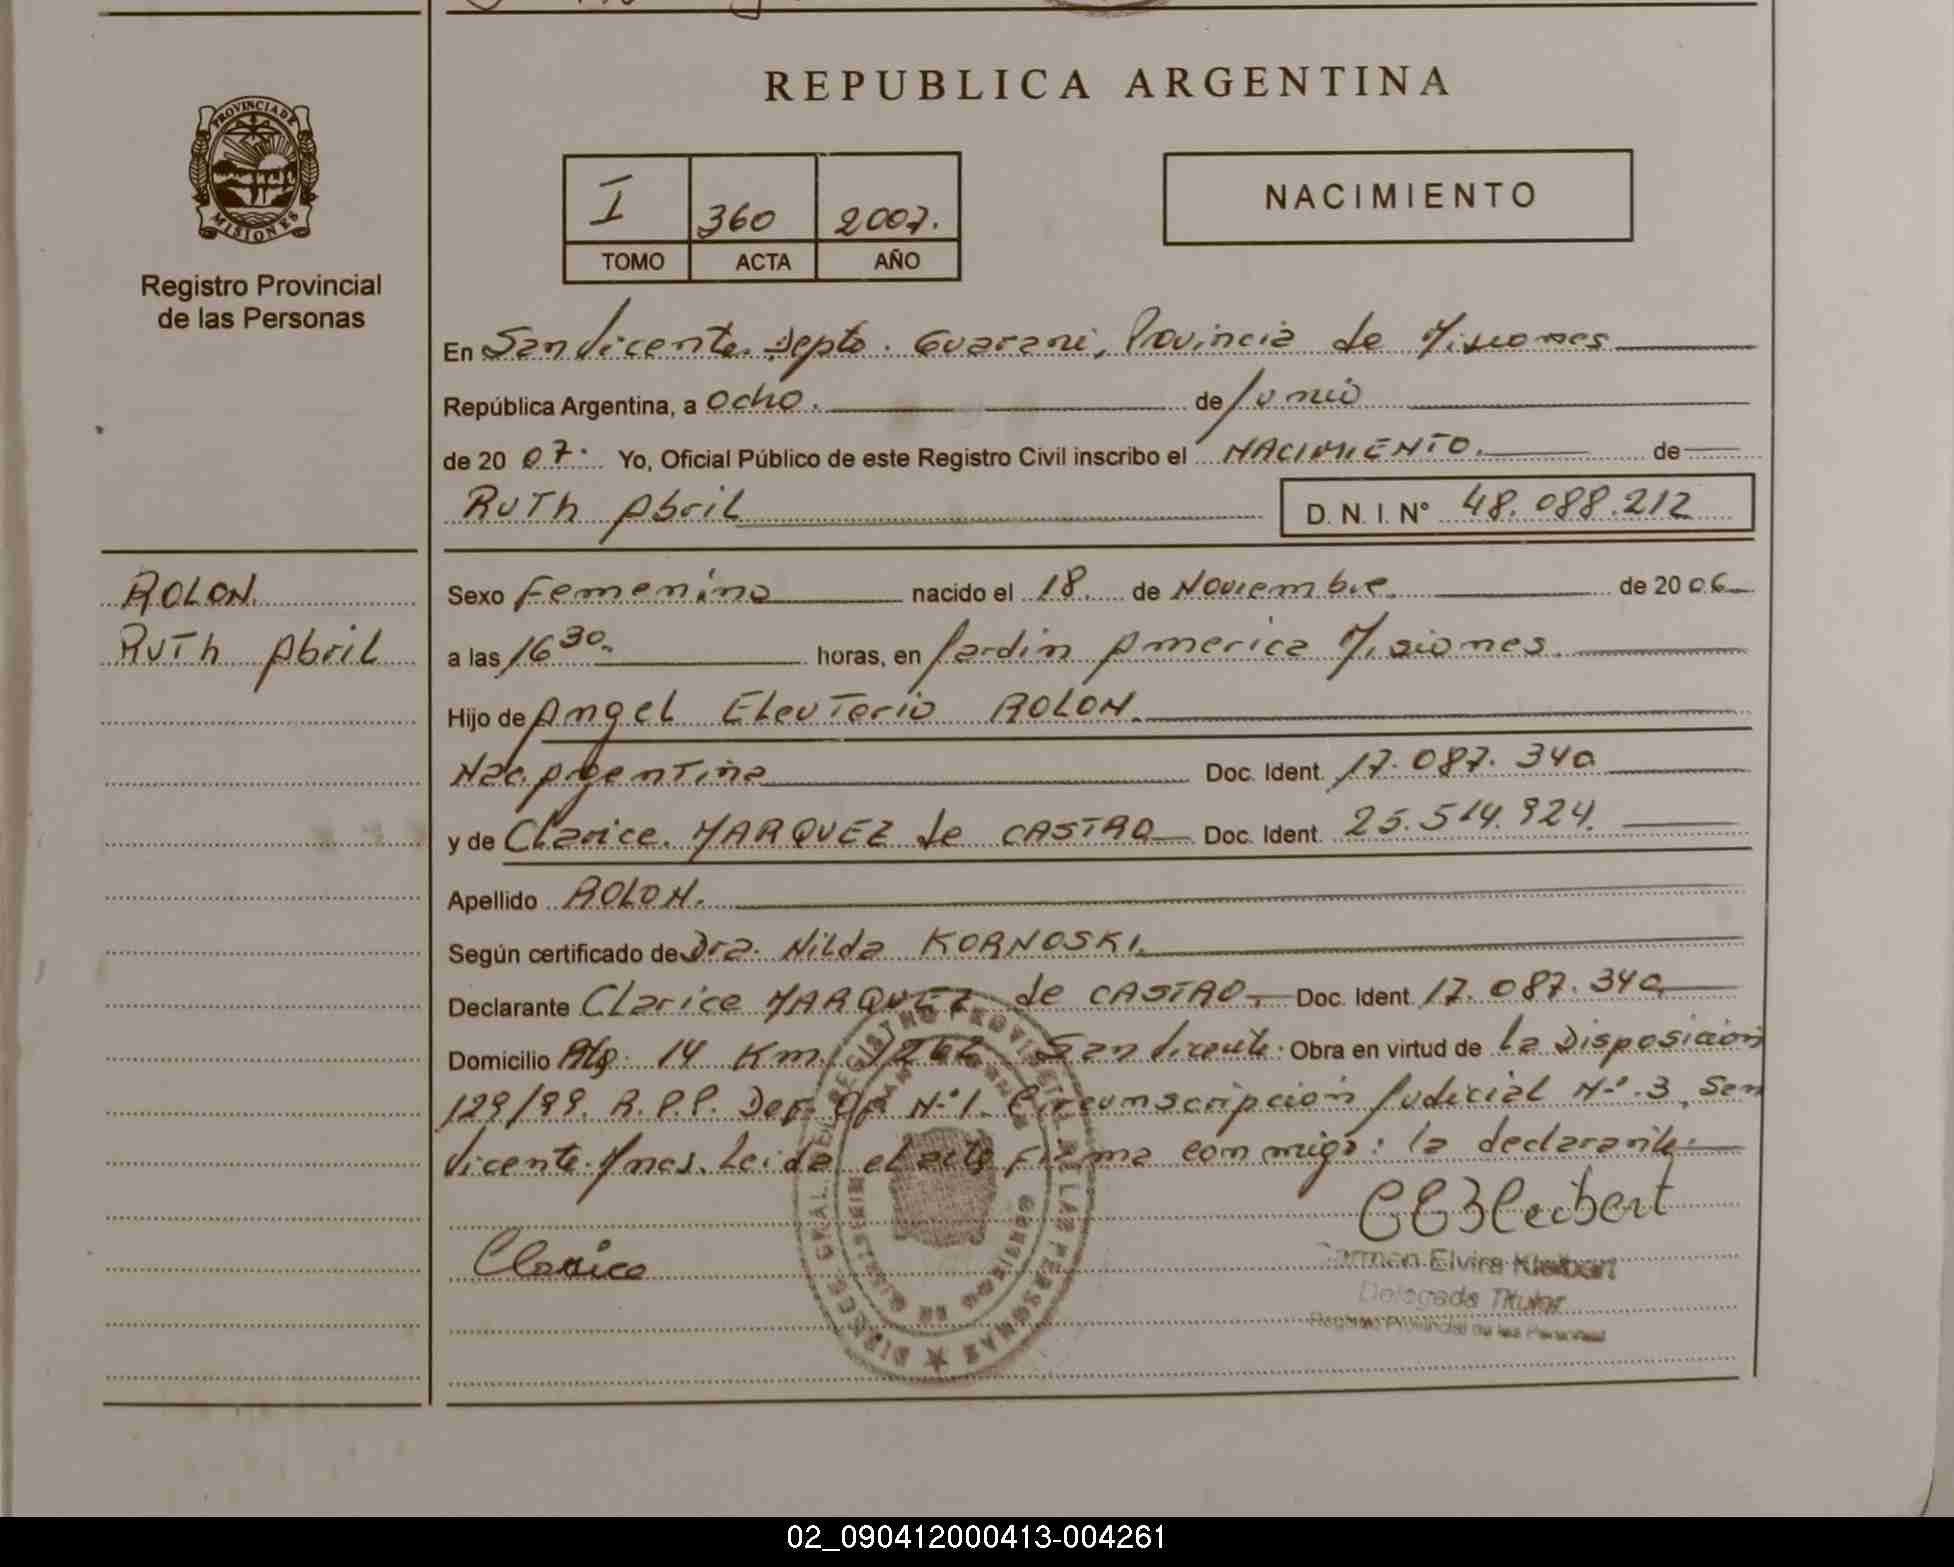 REPUBLICA ARGENTINA
PROVINCIA DE
MISIONES
Registro Provincial
de las Personas
I 360 2007.
TOMO ACTA AÑO
NACIMIENTO
En San Vicente. Depto. Guarani, Provincia de Misiones
República Argentina, a ocho. de Junio
de 20 07. Yo, Oficial Público de este Registro Civil inscribo el NACIMIENTO. de
RuTh Abril D. N. I. N° 48.088.212
ROLON.
RuTh Abril
Sexo Femenino nacido el 18. de Noviembre. de 20 06
a las 16 30. horas, en Jardin America Misiones.
Hijo de Angel EleuTerio ROLON.
Nac. ArgenTina Doc. Ident. 17.087.340
y de Clarice. MARQUEZ de CASTRO Doc. Ident. 25.514.924.
Apellido ROLON.
Según certificado de Dra. Nilda KORNOSKI.
Declarante Clarice MARQUEZ de CASTRO. Doc. Ident. 17.087.340
Domicilio 14 Km. San Vicente. Obra en virtud de la Disposición
129/99. R.P.P. Def. Of. N°1. Circunscripción Judicial N° 3, San
Vicente. Mnes. Leida el acta Firma conmigo: la declarante.
Clarice
Carmen Elvira
Delegada Titular
Registro Provincial de las Personas
02_090412000413-004261